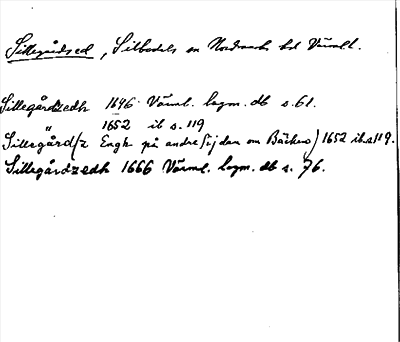 Sillegårdsed, Silbodals sn Nordmarks hd Värml.
Sillegårdzedh 1646 Värml. lagm. db s. 61.
" 1652 ib s. 119
Sillegård(z Engh på andre sijdan om Bäcken) 1652 ib. s. 119.
Sillegårdzedh 1666 Värml. lagm. db s. 76.